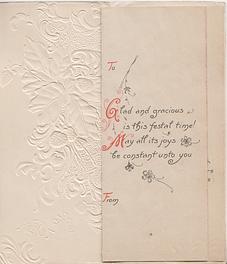 To
Glad and gracious
is this festal time!
May all its joys
be constant unto you
From